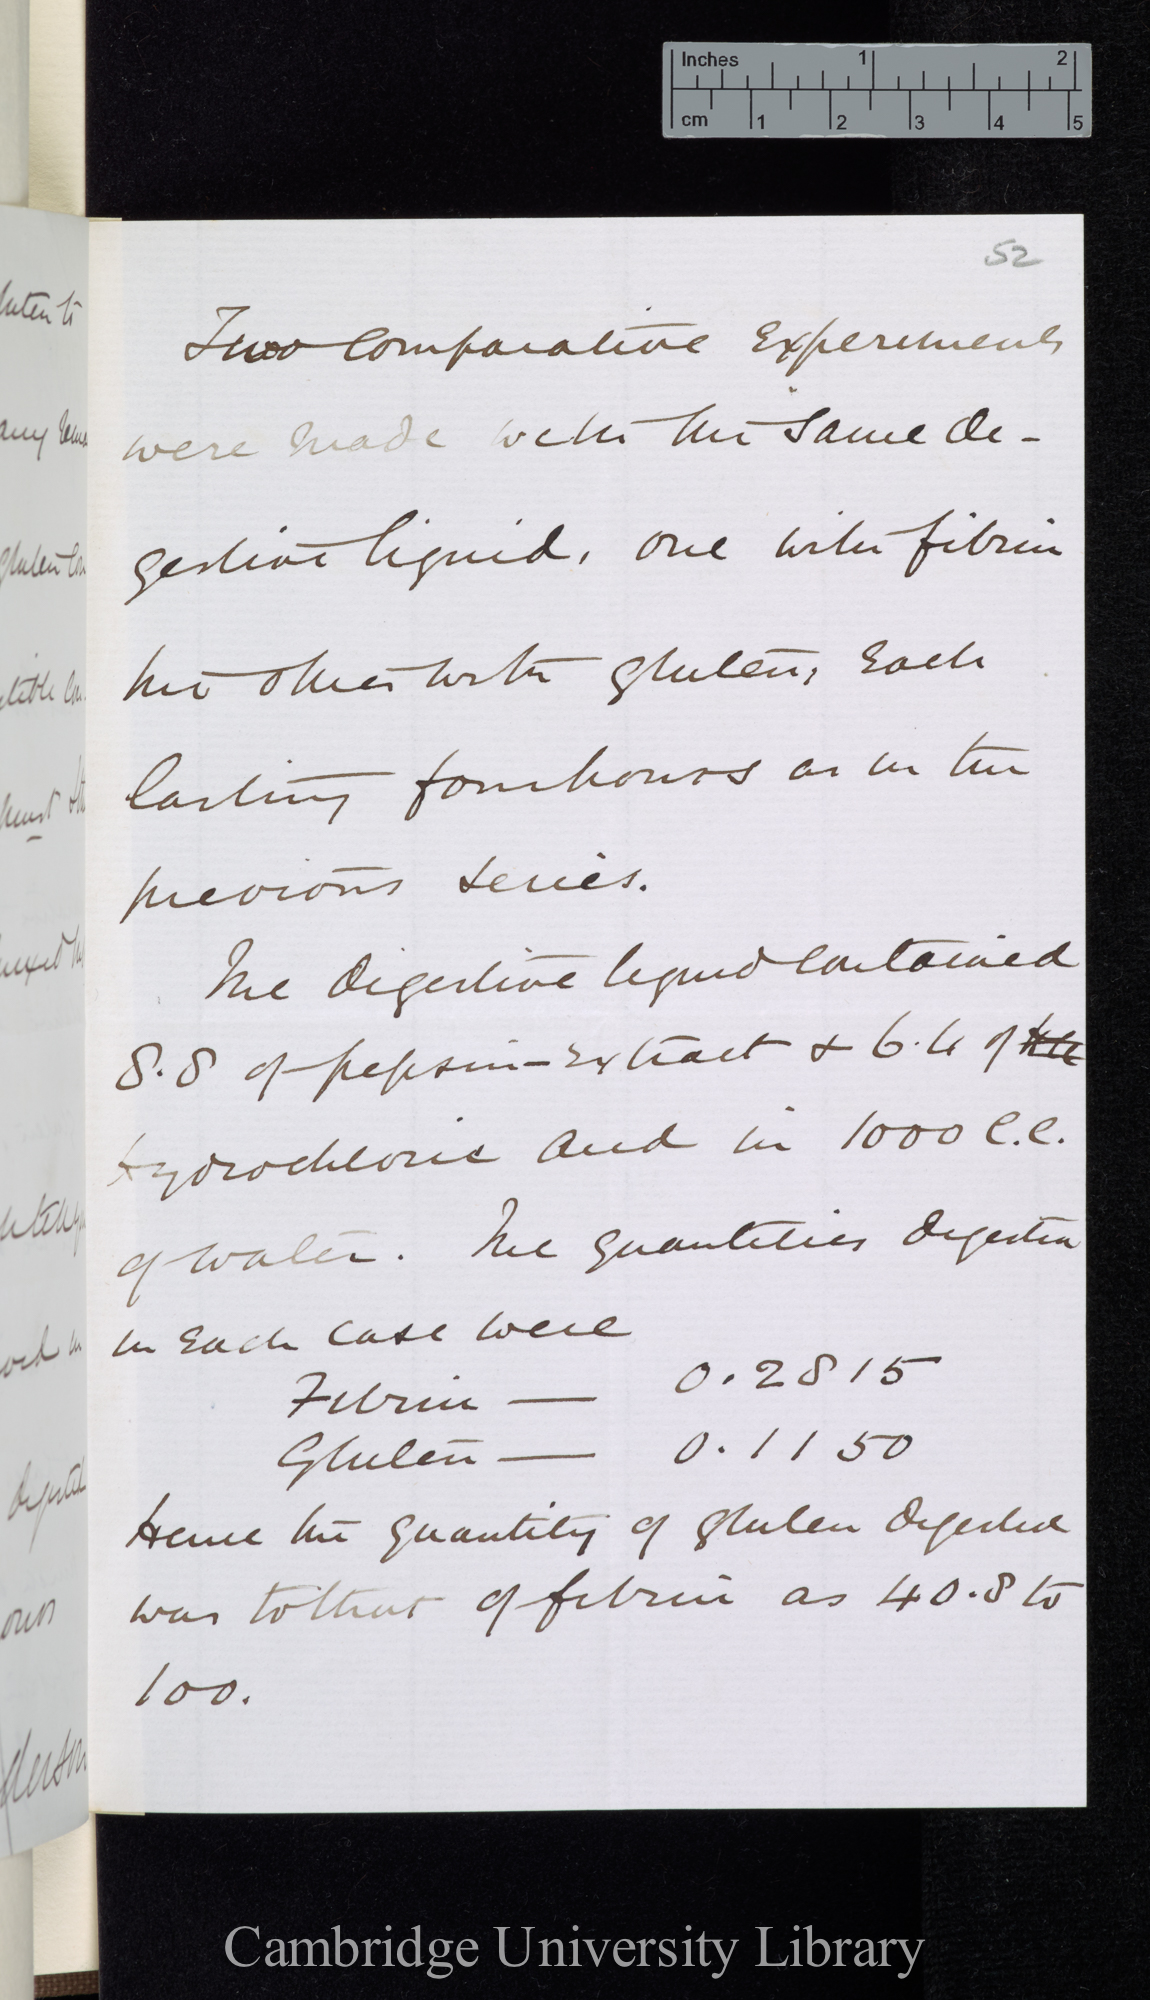 Inches 1 2
cm 1 2 3 4 5
52
Two comparative experiments
were made with the same di-
gestive liquid, one with fibrin
the other with gluten, each
lasting four hours as in the
previous series.
The digestive liquid contained
8.8 of pepsin-extract & 6.4 of
Hydrochloric acid in 1000 C.C.
of water. The quantities digested
in each case were
Fibrin — 0.2815
Gluten — 0.1150
Hence the quantity of gluten digested
was to that of fibrin as 40.8 to
100.
Cambridge University Library